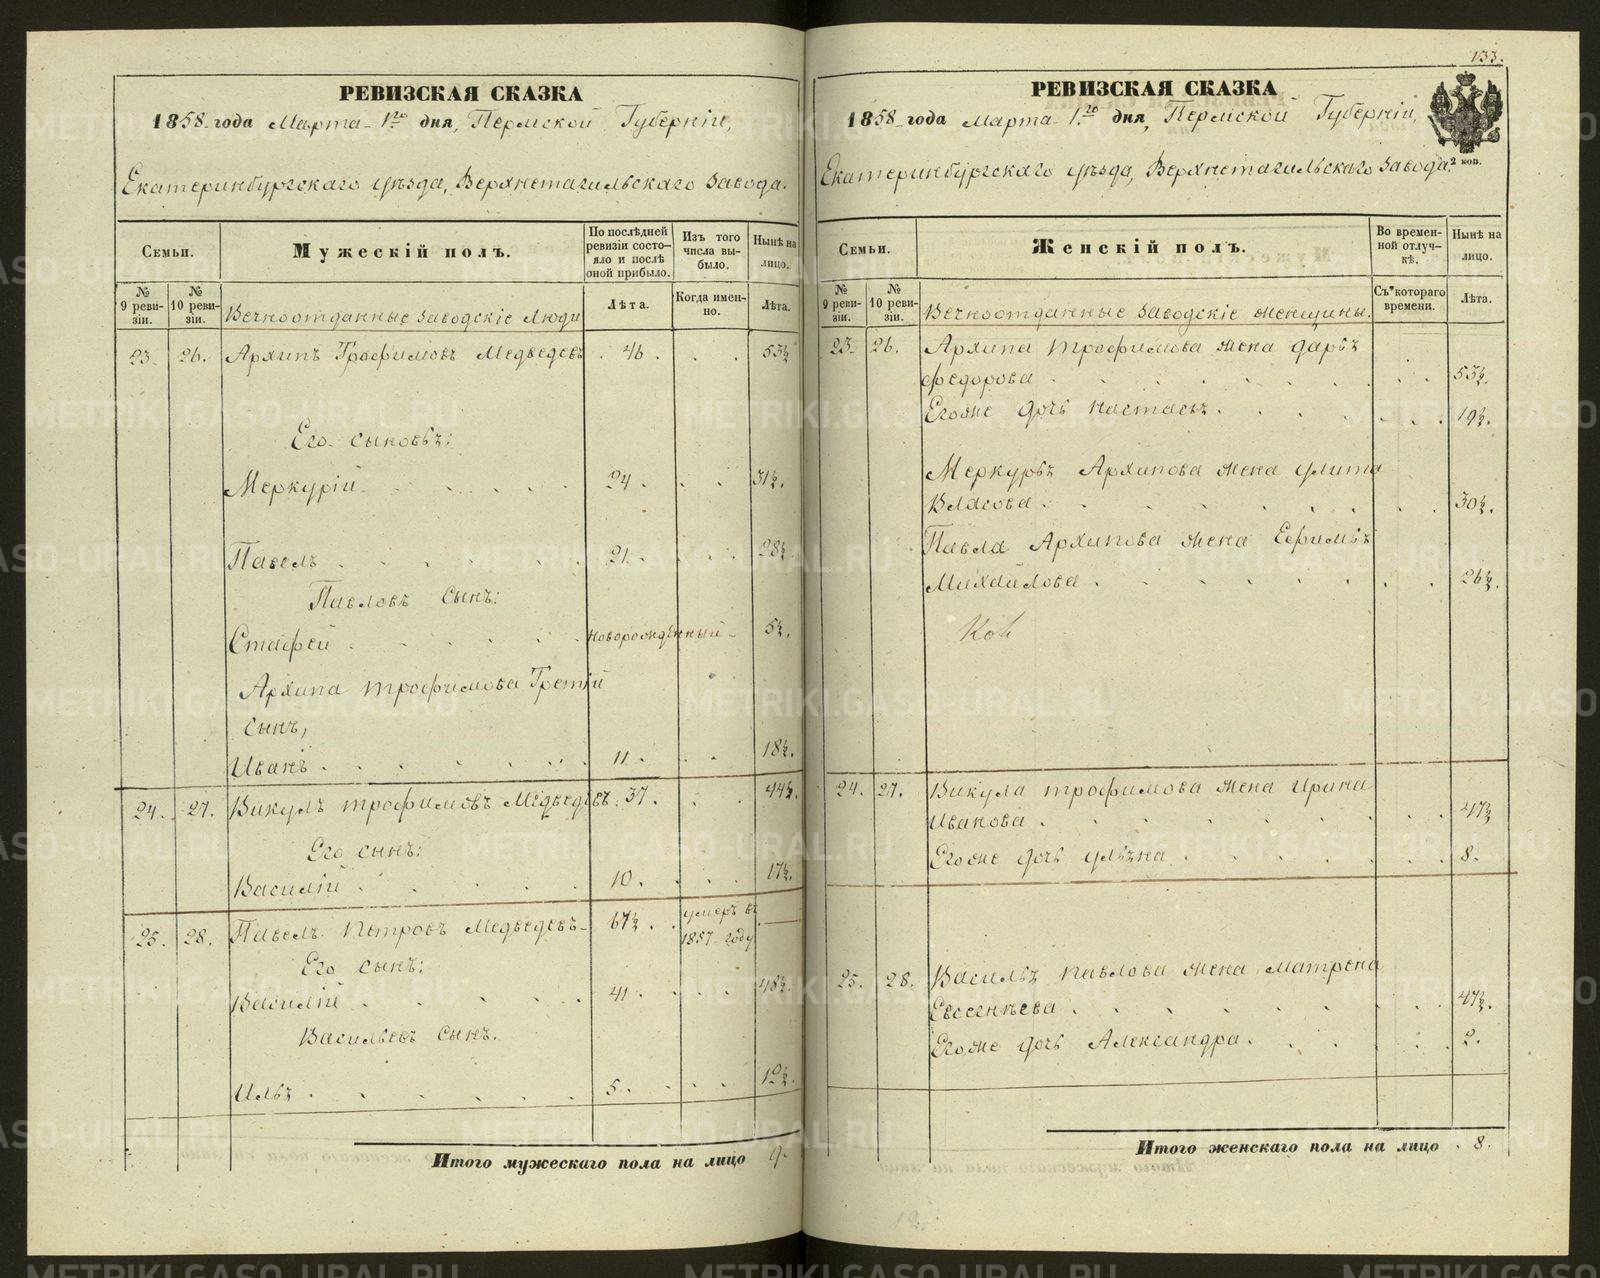 133.
РЕВИЗСКАЯ СКАЗКА
1858 года Марта 1го дня, Пермской Губерніи,
Екатеринбургскаго уѣзда, Верхнетагильскаго Завода.
Семьи.
Мужескій полъ.
По послѣдней ревизіи состояло и послѣ оной прибыло.
Изъ того числа выбыло.
Нынѣ на лицо.
№ 9 ревизіи.
№ 10 ревизіи.
Вечноотданные заводскіе люди
Лѣта.
Когда именно.
Лѣта.
23. 26. Архипъ Трофимовъ Медведевъ . 46 . . . 53½
Его сыновья:
Меркурій . 24 . . . 31½.
Павелъ . 21 . . . 28½.
Павловъ сынъ:
Стафей . новорожденный 5½.
Архипа Трофимова Третій
сынъ,
Иванъ . 11 . . . 18½.
24. 27. Викулъ Трофимовъ Медведевъ . 37 . . . 44½.
Его сынъ:
Василій . 10 . . . 17½.
25. 28. Павелъ Петровъ Медведевъ 67½ . умеръ въ 1857 году —
Его сынъ:
Василій . 41 . . . 48½.
Васильевъ сынъ.
Илья . 5 . . . 12½.
Итого мужескаго пола на лицо 9.
РЕВИЗСКАЯ СКАЗКА
1858 года Марта 1го дня, Пермской Губерніи,
Екатеринбургскаго уѣзда, Верхнетагильскаго Завода.
2 коп.
Семьи.
Женскій полъ.
Во временной отлучкѣ.
Нынѣ на лицо.
№ 9 ревизіи.
№ 10 ревизіи.
Вечноотданные заводскіе женщины.
Съ котораго времени.
Лѣта.
23. 26. Архипа Трофимова жена Дарья
Федорова . . . 53½.
Егоже дочь Настасья . . . 19½.
Меркурья Архипова жена Улита
Власова . . . 30½.
Павла Архипова жена Ефимья
Михайлова . . . 26½.
24. 27. Викула Трофимова жена Ирина
Иванова . . . 47½
Егоже дочь Ульяна . . . 8.
25. 28. Василья Павлова жена Матрена
Евсегнѣева . . . 47½.
Егоже дочь Александра . . . 2.
Итого женскаго пола на лицо . 8.
METRIKI.GASO-URAL.RU